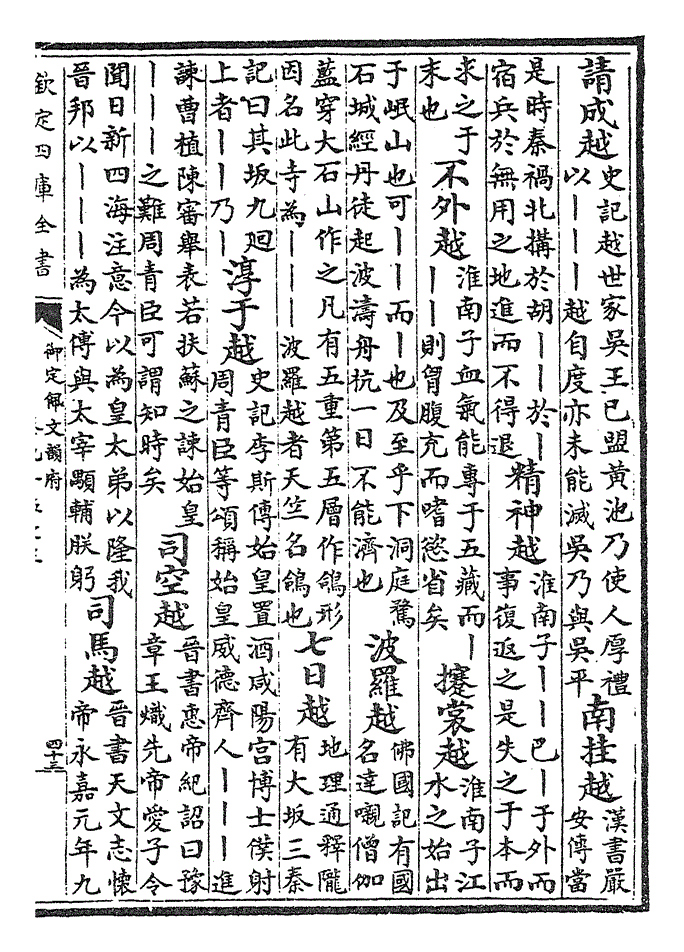 請成越
史記越世家吳王已盟黃池乃使人厚禮
以丨丨丨越自度亦未能滅吳乃與吳平
南挂越
漢書嚴
安傳當
是時秦禍北搆於胡丨丨於丨
宿兵於無用之地進而不得退
精神越
淮南子丨丨巴丨于外而
事復返之是失之于本而
求之于
末也
不外越
淮南子血氣能專于五藏而丨
丨丨則胷腹充而嗜慾省矣
攓裳越
淮南子江
水之始出
于岷山也可丨丨而丨也及至乎下洞庭騖
石城經丹徒起波濤舟杭一日不能濟也
波羅越
佛國記有國
名達嚫僧伽
藍穿大石山作之凡有五重第五層作鴿形
因名此寺為丨丨丨波羅越者天竺名鴿也
七日越
地理通釋隴
有大坂三秦
記曰其坂九廻
上者丨丨乃丨
淳于越
史記李斯傳始皇置酒咸陽宮博士僕射
周青臣等頌稱始皇威德齊人丨丨丨進
諫曹植陳審舉表若扶蘇之諫始皇
丨丨丨之難周青臣可謂知時矣
司空越
晉書惠帝紀詔曰豫
章王熾先帝愛子令
聞日新四海注意今以為皇太弟以隆我
晉邦以丨丨丨為太傅與太宰顒輔朕躬
司馬越
晉書天文志懷
帝永嘉元年九
欽定四庫全書
御定佩文韻府
四十三